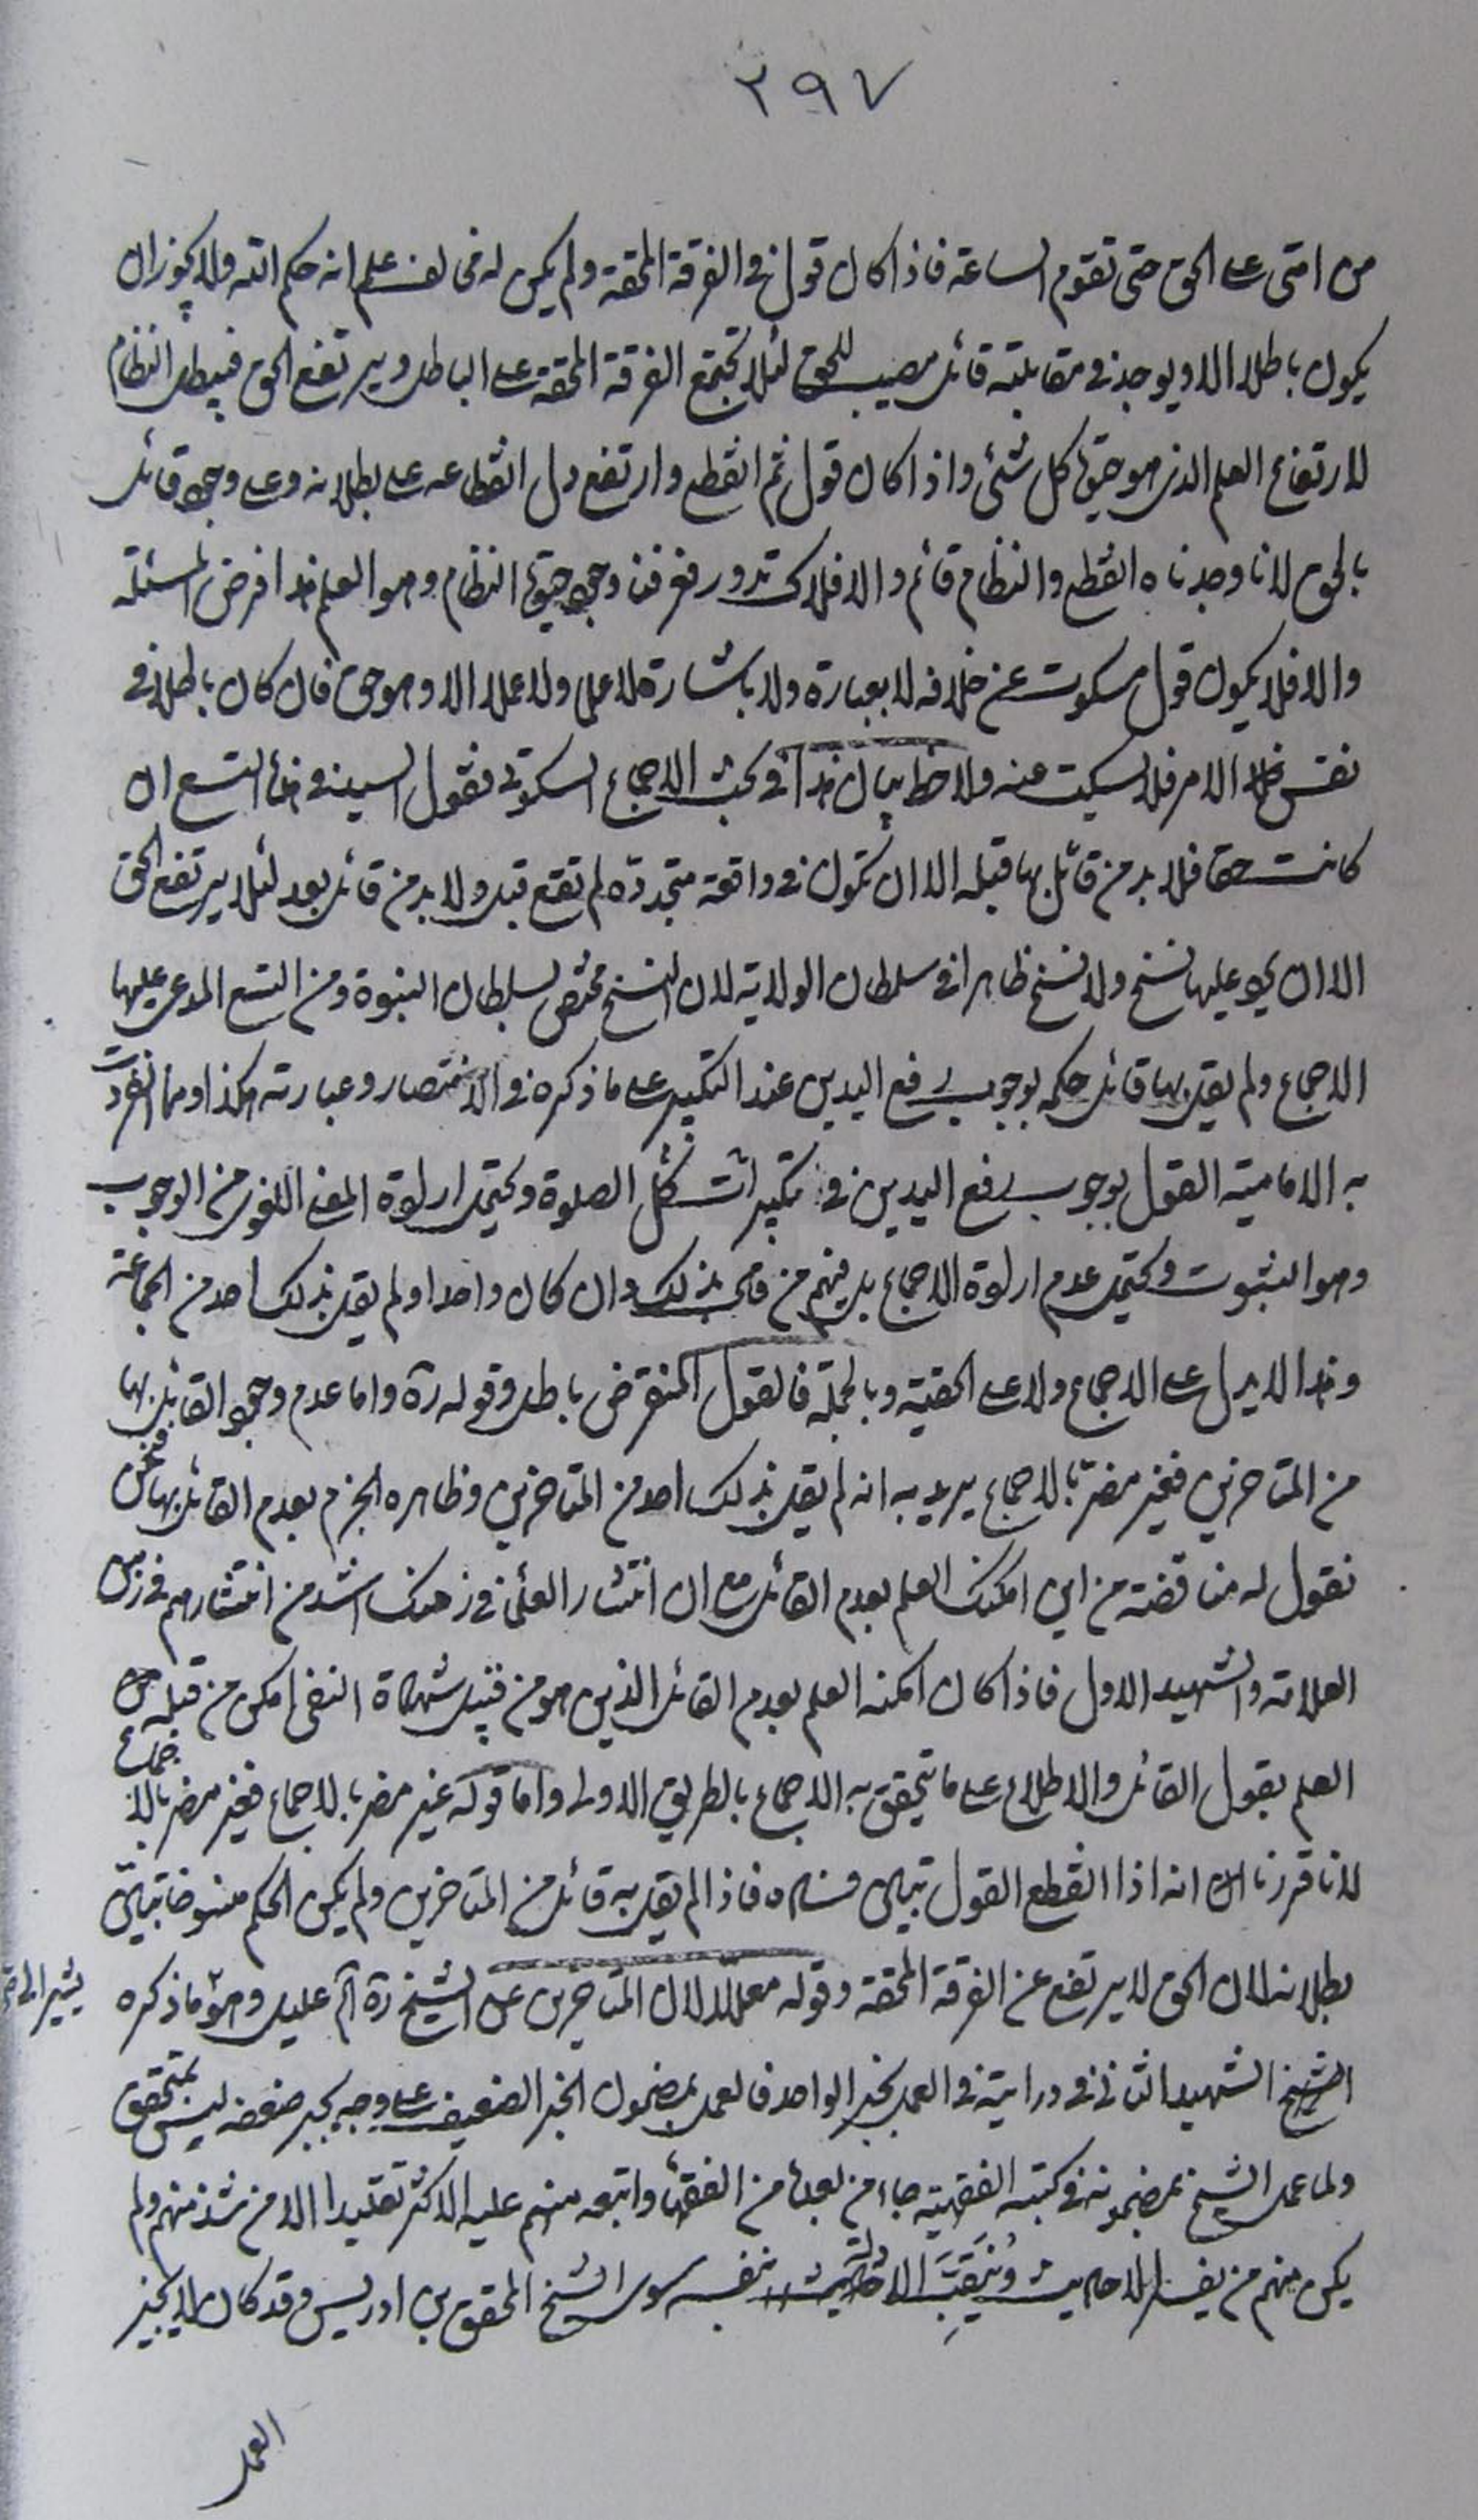 ٢٩٧
من امتى على الحق حتى تقوم الساعة فاذا كان قول فى الفرقة المحقة ولم يكن له مخالف علم انه حكم الله ولا يجوز ان
يكون باطلا الا ويوجد فى مقابلته قائل مصيب للحق لئلا تجتمع الفرقة المحقة على الباطل ويرتفع الحق فيبطل النظام
لارتفاع العلم الذى هو حيوة كل شئ واذا كان قول ثم انقطع وارتفع دل انقطاعه على بطلانه وعلى وجود قائل
بالحق لانا وجدناه انقطع والنظام قائم والافلاك تدور فعرفنا وجود حيوة النظام وهو العلم هذا فرض المسئلة
والا فلا يكون قول مسكوت عن خلافه لا بعبارة ولا باشارة لا علما ولا عملا الا وهو حق فان كان باطلا فى
نفس الامر فلا يسكت عنه ولاحظ بيان هذا فى بحث الاجماع السكوتى فقول السيد فى هذه التسع ان
كانت حقا فلا بد من قائل بها قبله الا ان تكون فى واقعة متجددة لم تقع قبل ولا بد من قائل بعد لئلا يرتفع الحق
الا ان يجرى عليها نسخ ولا نسخ ظاهرا فى سلطان الولاية لان النسخ مختص بسلطان النبوة ومن التسع المدعى عليها
الاجماع ولم يقل بها قائل حكمه بوجوب رفع اليدين عند التكبير على ما ذكره فى الانتصار وعبارته هكذا ومما انفردت
به الامامية القول بوجوب رفع اليدين فى تكبيرات كل الصلوة ويحتمل ارادة المعنى اللغوى من الوجوب
وهو الثبوت ويحتمل عدم ارادة الاجماع بل فيهم من قال بذلك وان كان واحدا ولم يقل بذلك احد من الجماعة
وهذا لا يدل على الاجماع ولا على الحقية وبالجملة فالقول المنقرض باطل وقوله ره واما عدم وجود القائل بها
من المتاخرين فغير مضر بالاجماع يريد به انه لم يقل بذلك احد من المتاخرين وظاهره الجزم بعدم القائل بها فنحن
نقول له مناقضة من اين امكنك العلم بعدم القائل مع ان انتشار العلماء فى زمنك اشد من انتشارهم فى زمن
العلامة والشهيد الاول فاذا كان امكنه العلم بعدم القائل الذى هو من قبيل شهادة النفى امكن من قبله من
العلم بقول القائل والاطلاع على ما يتحقق به الاجماع بالطريق الاولى واما قوله غير مضر بالاجماع فغير مضر بالاجماع
لانا قررنا انه اذا انقطع القول تبين فساده فاذا لم يقل به قائل من المتاخرين ولم يكن الحكم منسوخا تبين
بطلانه لان الحق لا يرتفع عن الفرقة المحقة وقوله معللا لان المتاخرين على الشيخ ره اه عليل وهو ما ذكره
يشير الى
الشيخ الشهيد الثانى فى درايته فى العمل بخبر الواحد فالعمل بمضمون الخبر الضعيف على وجه يجبر ضعفه ليس بمتحقق
ولما عمل الشيخ بمضمونه فى كتبه الفقهية جاء من بعده من الفقهاء واتبعه منهم عليه الاكثر تقليدا الا من شذ منهم ولم
يكن منهم من يسبر الاحاديث وينقب الادلة بنفسه سوى الشيخ المحقق بن ادريس وقد كان لا يجيز
العمل